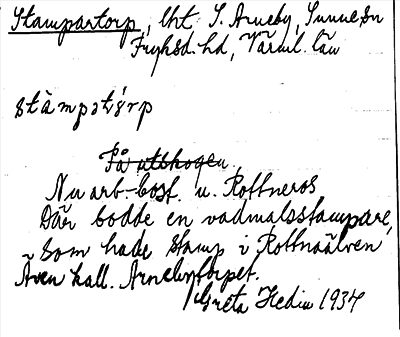 Stampartorp, lht S. Arneby, Sunne sn
Fryksd. hd, Värml. län
stàmpaṭórp
På utskogen
Nu arb-bost. u. Rottneros.
Där bodde en vadmalsstampare,
som hade stamp i Rottnaälven
Även kall. Arnebytorpet.
Greta Hedin 1937